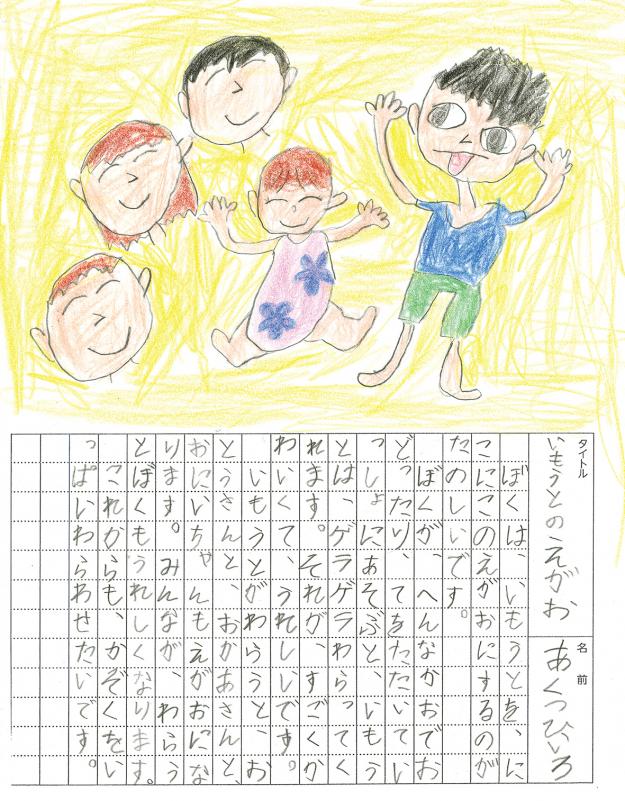 タイトル
いもうとのえがお
名前
あくつひいろ
ぼくは、いもうとを、に
こにこのえがおにするのが
たのしいです。
ぼくが、へんなかおでお
どったり、てをたたいてい
っしょにあそぶと、いもう
とは、ゲラゲラわらってく
れます。それが、すごくか
わいくて、うれしいです。
いもうとがわらうと、お
とうさんと、おかあさんと、
おにいちゃんもえがおにな
ります。みんなが、わらう
とぼくもうれしくなります。
これからも、かぞくをい
っぱいわらわせたいです。